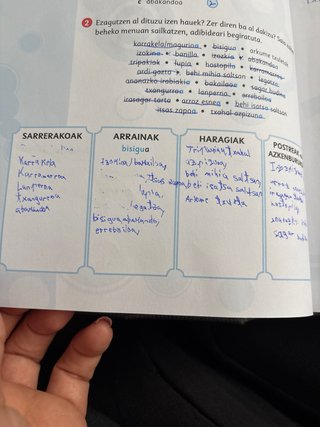 e abakandoa
2 Ezagutzen al dituzu izen hauek? Zer diren ba al dakizu?
beheko menuan sailkatzen, adibideari begiratuta.
karrakela/magurioa • bisigua • arkume txuleta
izokina • banilla • izozkia • abakandoa
tripakiak • lupia • hostopila • karramarroa
ardi gazta • behi mihia saltsan • legatza
ananazko irabiakia • bakailaoa • sagar budina
txangurroa • lanperna • errebailoa
irasagar tarta • arroz esnea • behi isatsa saltsan
itsas zapoa • txahal azpizuna
SARRERAKOAK
ARRAINAK
HARAGIAK
POSTREAK
AZKENBURU
bisigua
Karrakela
Karramarroa
Lanperoa
txangurroa
abakandoa
izokina/bakailaoa,
itsas zapoa
lupia,
legatza,
bisigua, abakandoa,
errebailoa,
Tripakiak, txahal
azpizuna,
behi mihia saltsan,
behi isatsa saltsan
Arkume txuleta
sagar